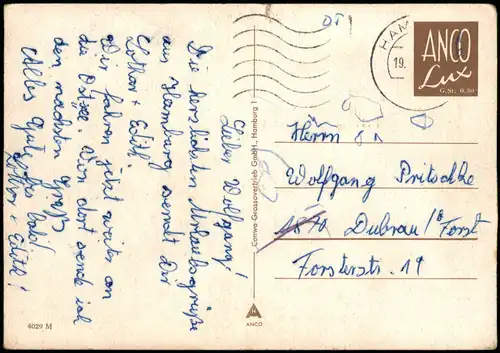 Lieber Wolfgang!
Die herzlichsten Urlaubsgrüße
aus Hamburg sendet Dir
Lothar + Edith.
Wir fahren jetzt weiter an
die Ostsee. Von dort sende ich
den nächsten Gruß.
Alles Gute bis bald!
Lothar + Edith!
6029 M
Comwa-Grossovertrieb GmbH., Hamburg 1
H
ANCO
DT
HAM
19.
ANCO
Lux
G. St. 0.30
Herrn
Wolfgang Pritschke
Dubrau / Forst
Forsterstr. 19